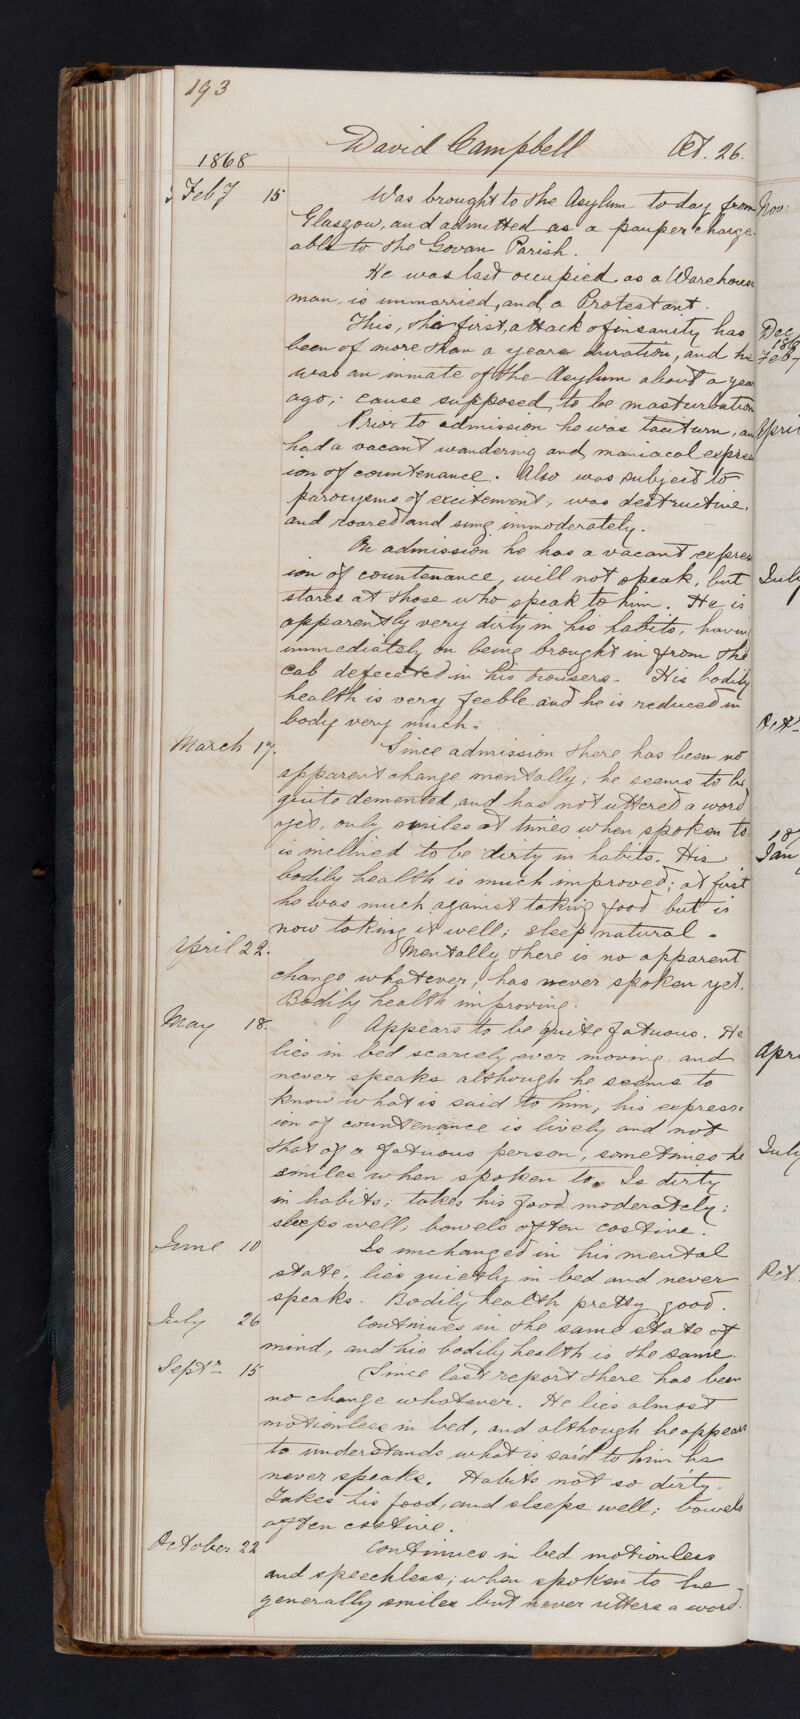 193
David Campbell Oct. 26.
1868
Feby 15 Was brought to the Asylum to day from
Glasgow, and admitted as a pauper charge-
able to the Govan Parish.
He was last occupied as a Warehouse
man, is unmarried, and a Protestant.
This, the first, attack of insanity has
been of more than a years duration, and he
was an inmate of the Asylum about a year
ago; cause supposed to be masturbation
Prior to admission he was taciturn, an
had a vacant wandering and maniacal expres
ion of countenance. Also was subject to
paroxysms of excitement, was destructive,
and roared and sung immoderately.
On admission he has a vacant expres
ion of countenance, will not speak, but
stares at those who speak to him. He is
apparently very dirty in his habits, havin
immediately on being brought in from the
cab defecated in his trousers. His bodily
health is very feeble and he is reduced in
body very much.
March 17. Since admission there has been no
apparent change mentally, he seems to be
quite demented, and has not uttered a word
yet, only smiles at times when spoken to.
is inclined to be dirty in habits. His
bodily health is much improved; at first
he was much against taking food but is
now taking it well; sleep natural.
April 22. Mentally there is no apparent
change whatever, has never spoken yet.
Bodily health improving.
May 18. Appears to be quite fatuous. He
lies in bed scarcely ever moving and
never speaks although he seems to
know what is said to him, his express-
ion of countenance is lively and not
that of a fatuous person, sometimes he
smiles when spoken to. Is dirty
in habits; takes his food moderately;
sleeps well; bowels often costive.
June 10 Is unchanged in his mental
state; lies quietly in bed and never
speaks. Bodily health pretty good.
July 26 Continues in the same state of
mind, and his bodily health is the same.
Septr 15 Since last report there has been
no change whatever. He lies almost
motionless in bed, and although he appears
to understands what is said to him he
never speaks. Habits not so dirty.
Takes his food, and sleeps well; bowels
often costive.
October 22 Continues in bed motionless
and speechless; when spoken to he
generally smiles but never utters a word.
Nov:
Dec
Feby
April
July
Oct
Jan
Apri
July
Oct.